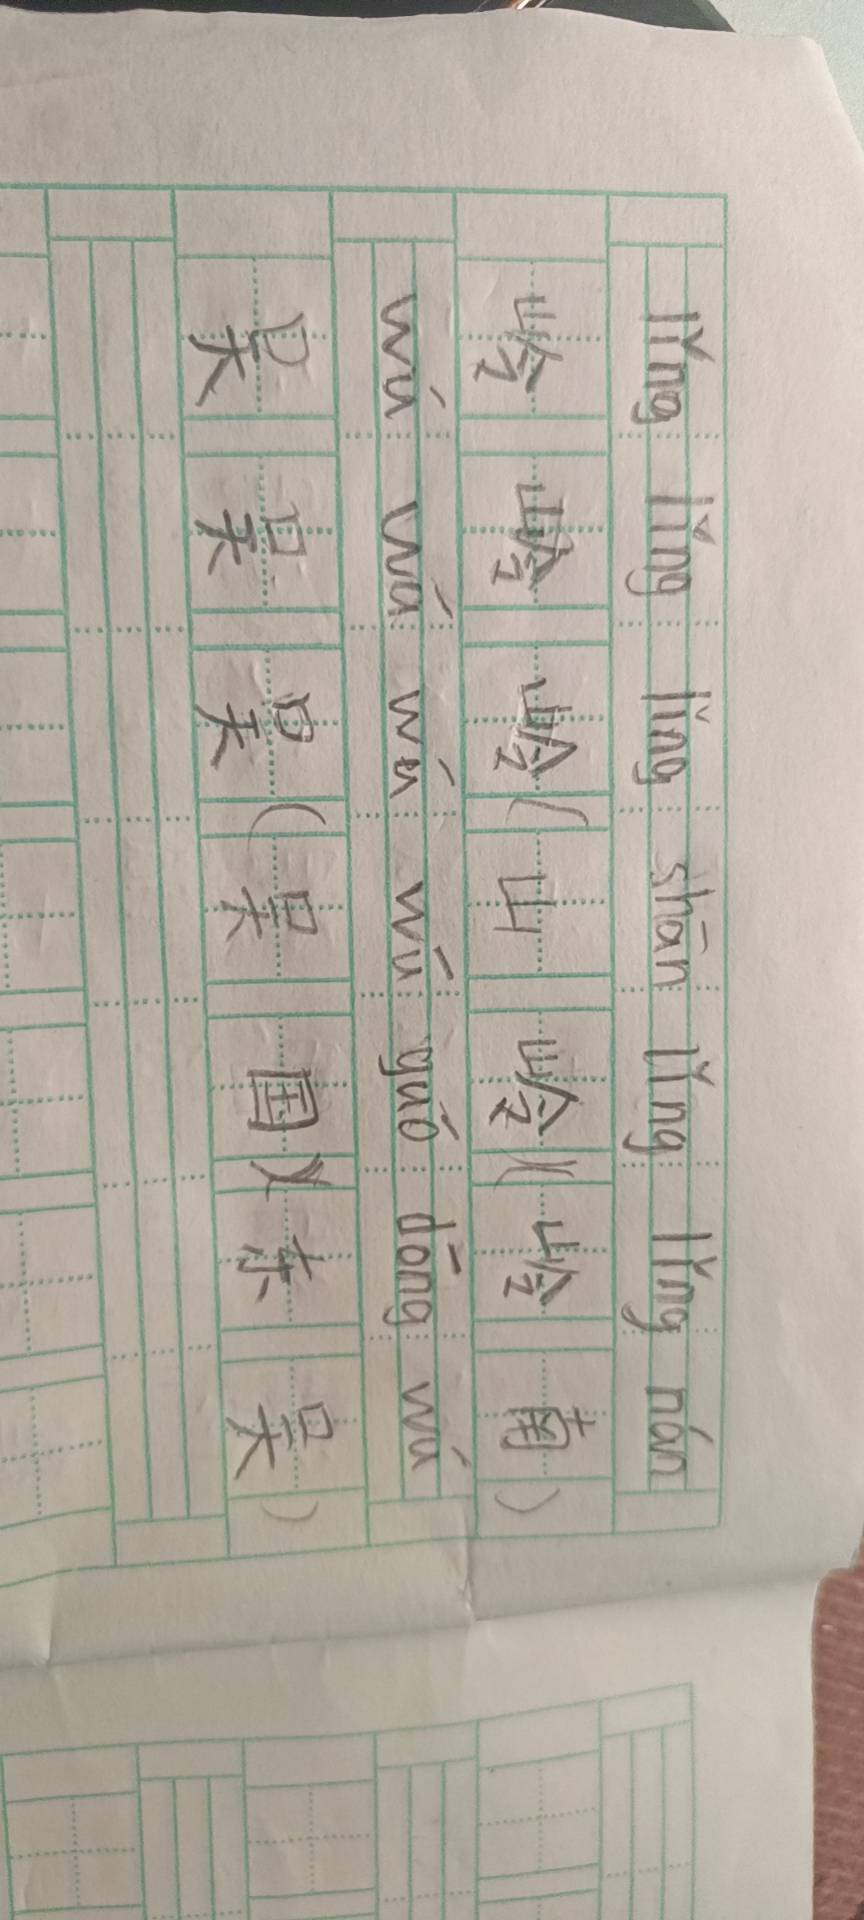 lǐng lǐng lǐng shān lǐng lǐng nán
岭岭岭(山岭)(岭南)
wú wú wú wú guó dōng wú
吴吴吴(吴国)(东吴)